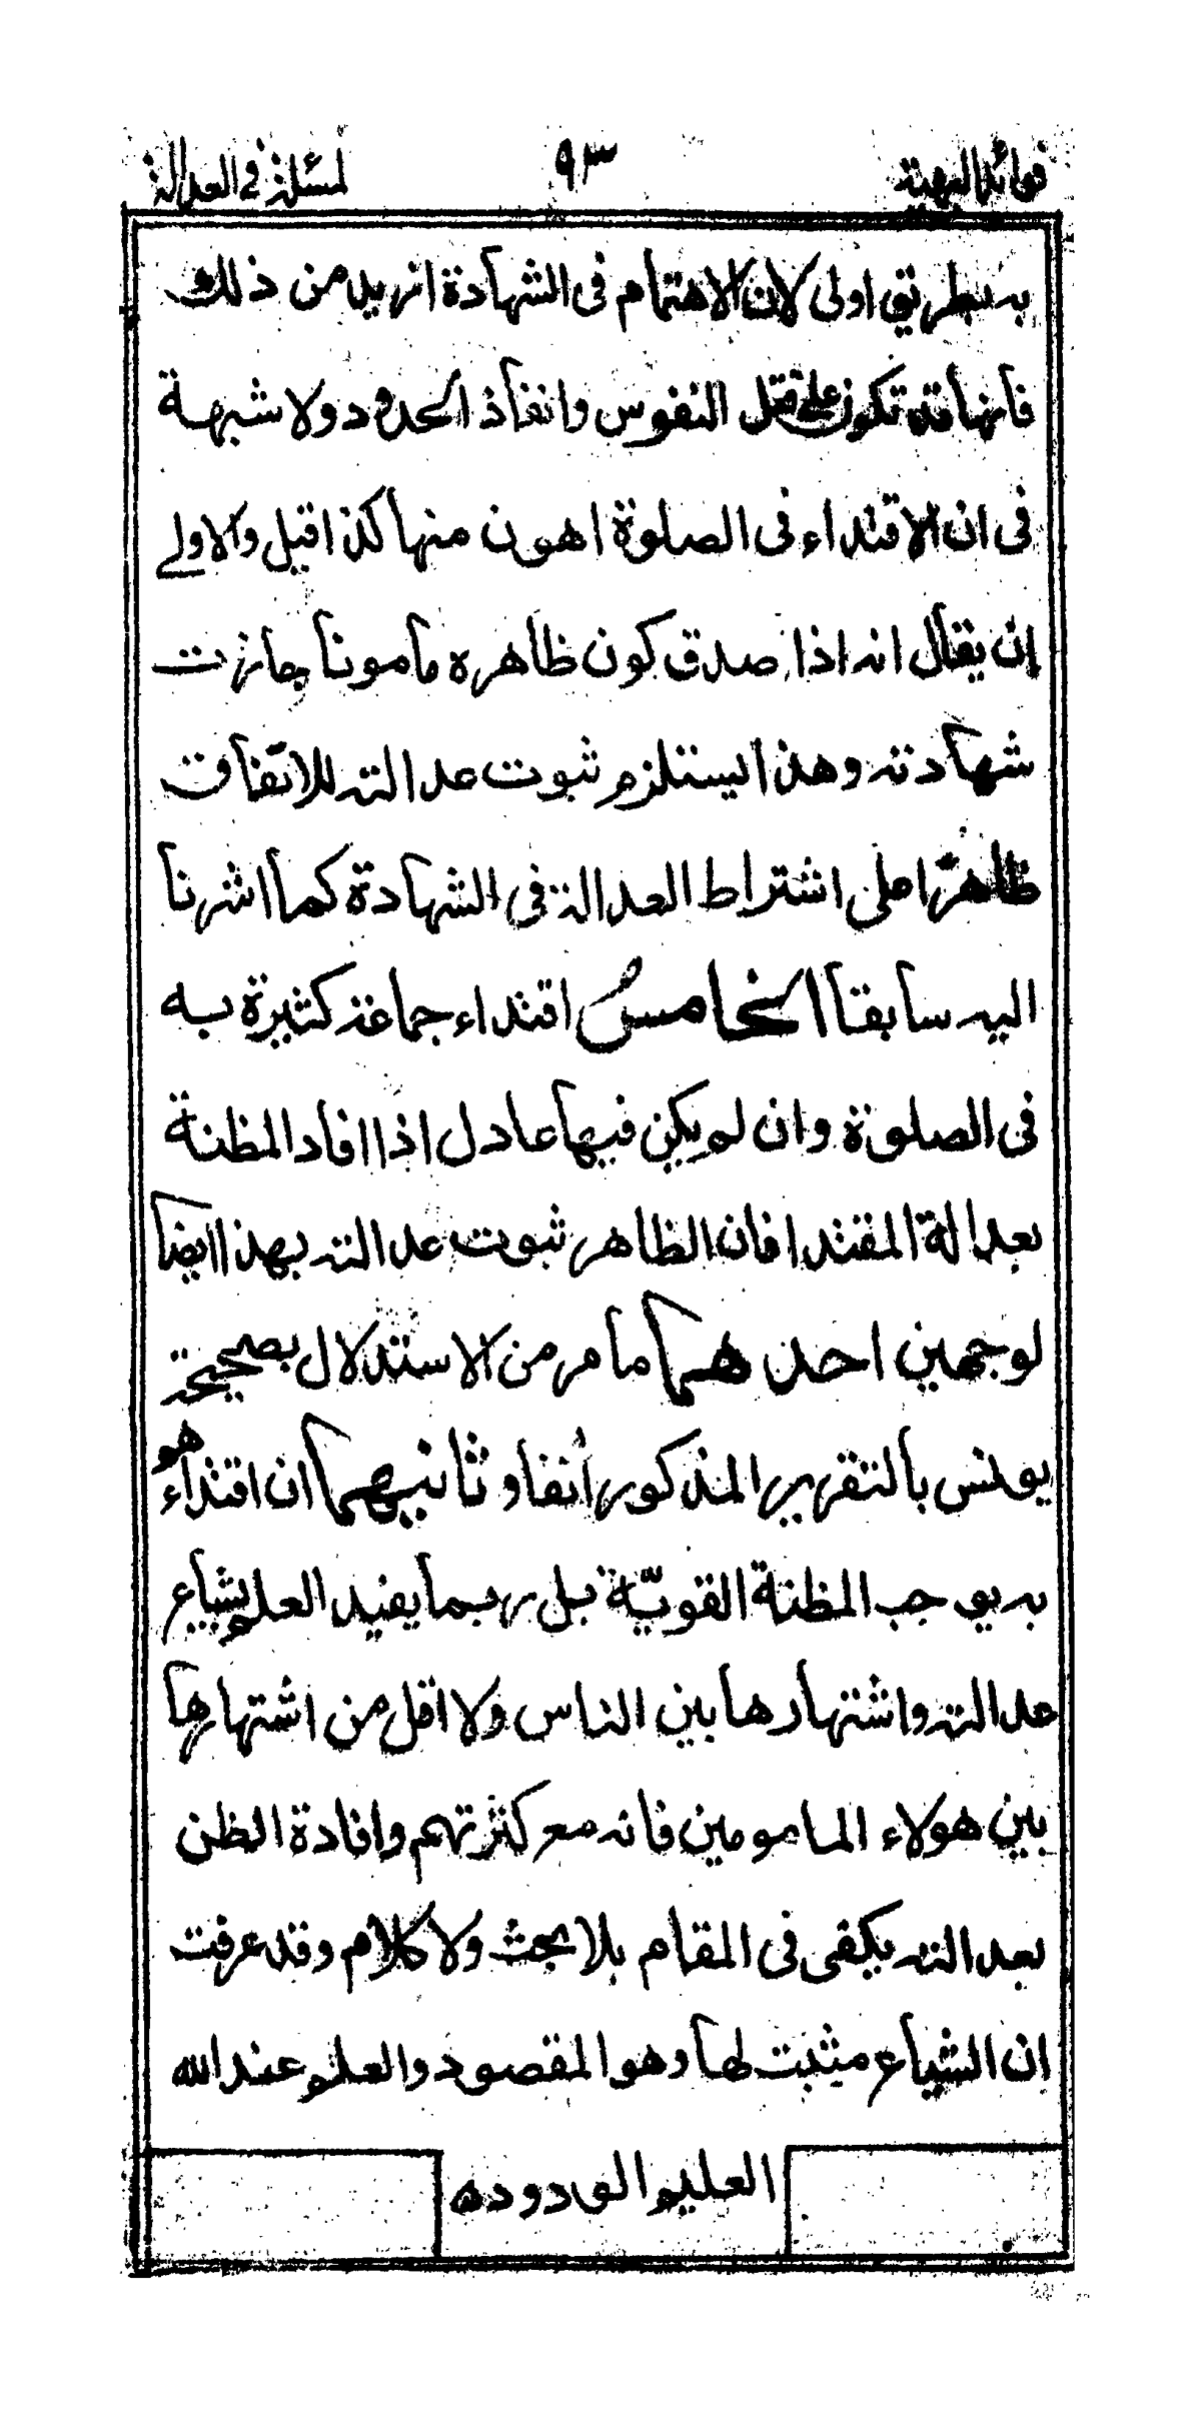 فوائد البهية ٩٣ لمسئلة في العدالة
به بطريق اولى لان الاهتمام فى الشهادة ازيد من ذلك
فانها قد تكون على قتل النفوس وانفاذ الحدود ولا شبهة
فى ان الاقتداء فى الصلوة اهون منها كذا قيل والاولے
ان يقال انه اذا صدق كون ظاهره مامونا جازت
شهادته وهذا يستلزم ثبوت عدالته للاتفاق
ظاهرًا على اشتراط العدالة فى الشهادة كما اشرنا
اليه سابقا الخامس اقتداء جماعة كثيرة به
فى الصلوة وان لم يكن فيها عادل اذا افاد المظنة
بعدالة المقتدا فان الظاهر ثبوت عدالته بهذا ايضا
لوجهين احدهما ما مر من الاستدلال بصحيحة
يونس بالتقرير المذكور أنفا وثانيهما ان اقتداءهو
به يوجب المظنة القويّة بل ربما يفيد العلم بشياع
عدالته واشتهارها بين الناس ولا اقل من اشتهارها
بين هولاء المامومين فانه مع كثرتهم وافادة الظن
بعدالته يكفى فى المقام بلا بحث ولا كلام وقد عرفت
ان الشياع مثبت لها وهو المقصود والعلم عند الله
العليم الودود ه